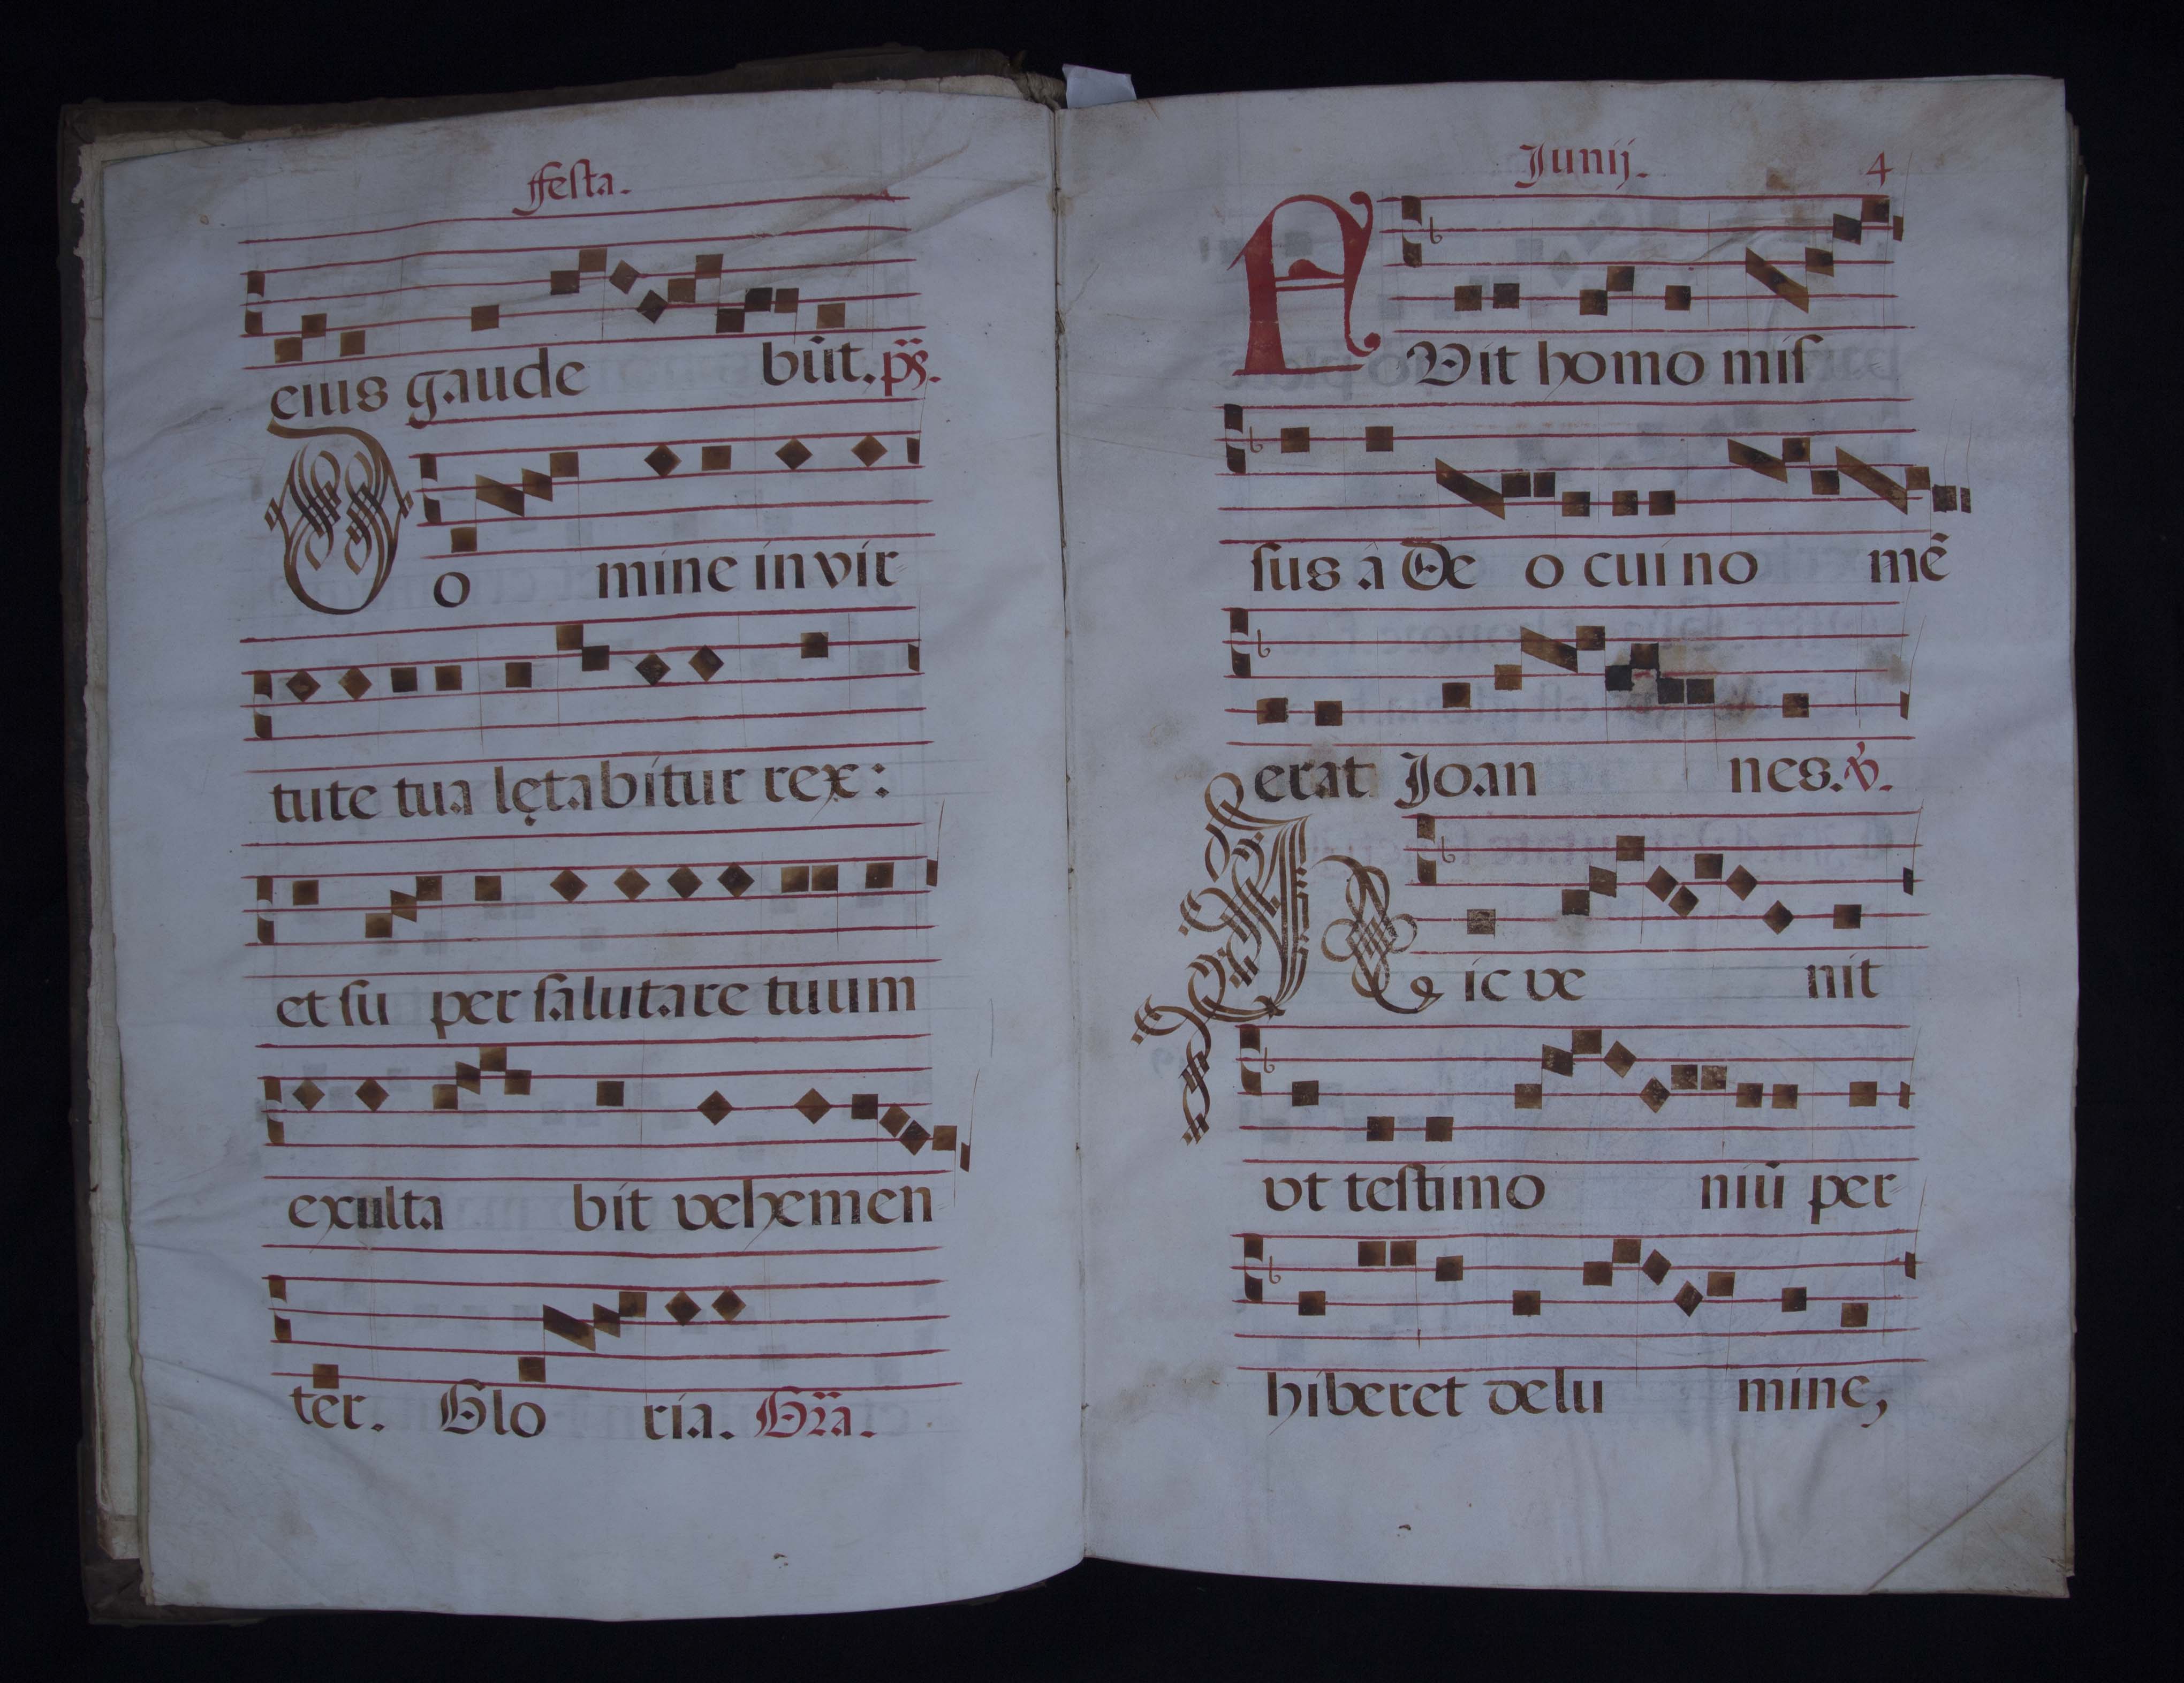 ffesta.
eius gaude bũt. ps̃.
Do mine in vir
tute tua lętabitur rex:
et su per salutare tuum
exulta bit vehemen
ter. Glo ria. Gr̃a.
Junij. 4
FVit homo mis
sus à De o cui no mẽ
erat Joan nes. ℣.
Hic ve nit
vt testimo niũ per
hiberet de lu mine,